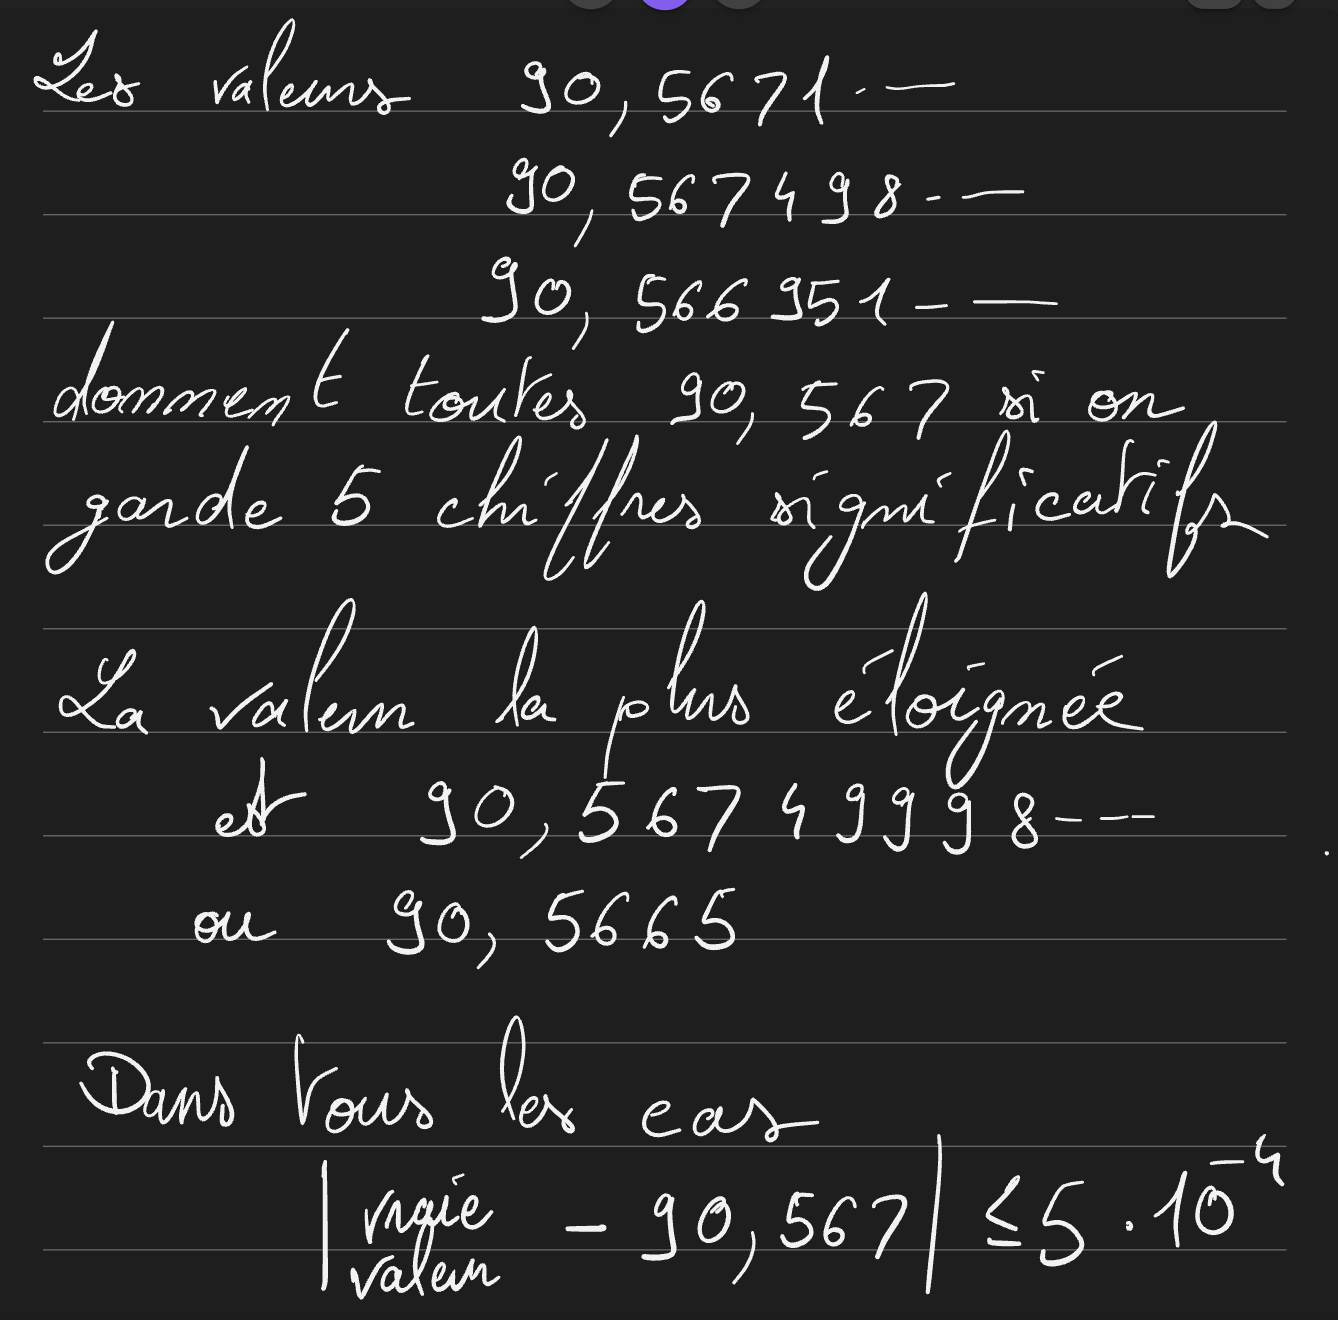 Les valeurs 90,5671.—
90,567498-—
90,566951-—
donnent toutes 90,567 si on
garde 5 chiffres significatifs
La valeur la plus éloignée
est 90,56749998---
ou 90,5665
Dans tous les cas
| vraie valeur - 90,567 | ≤ 5 . 10⁻⁴